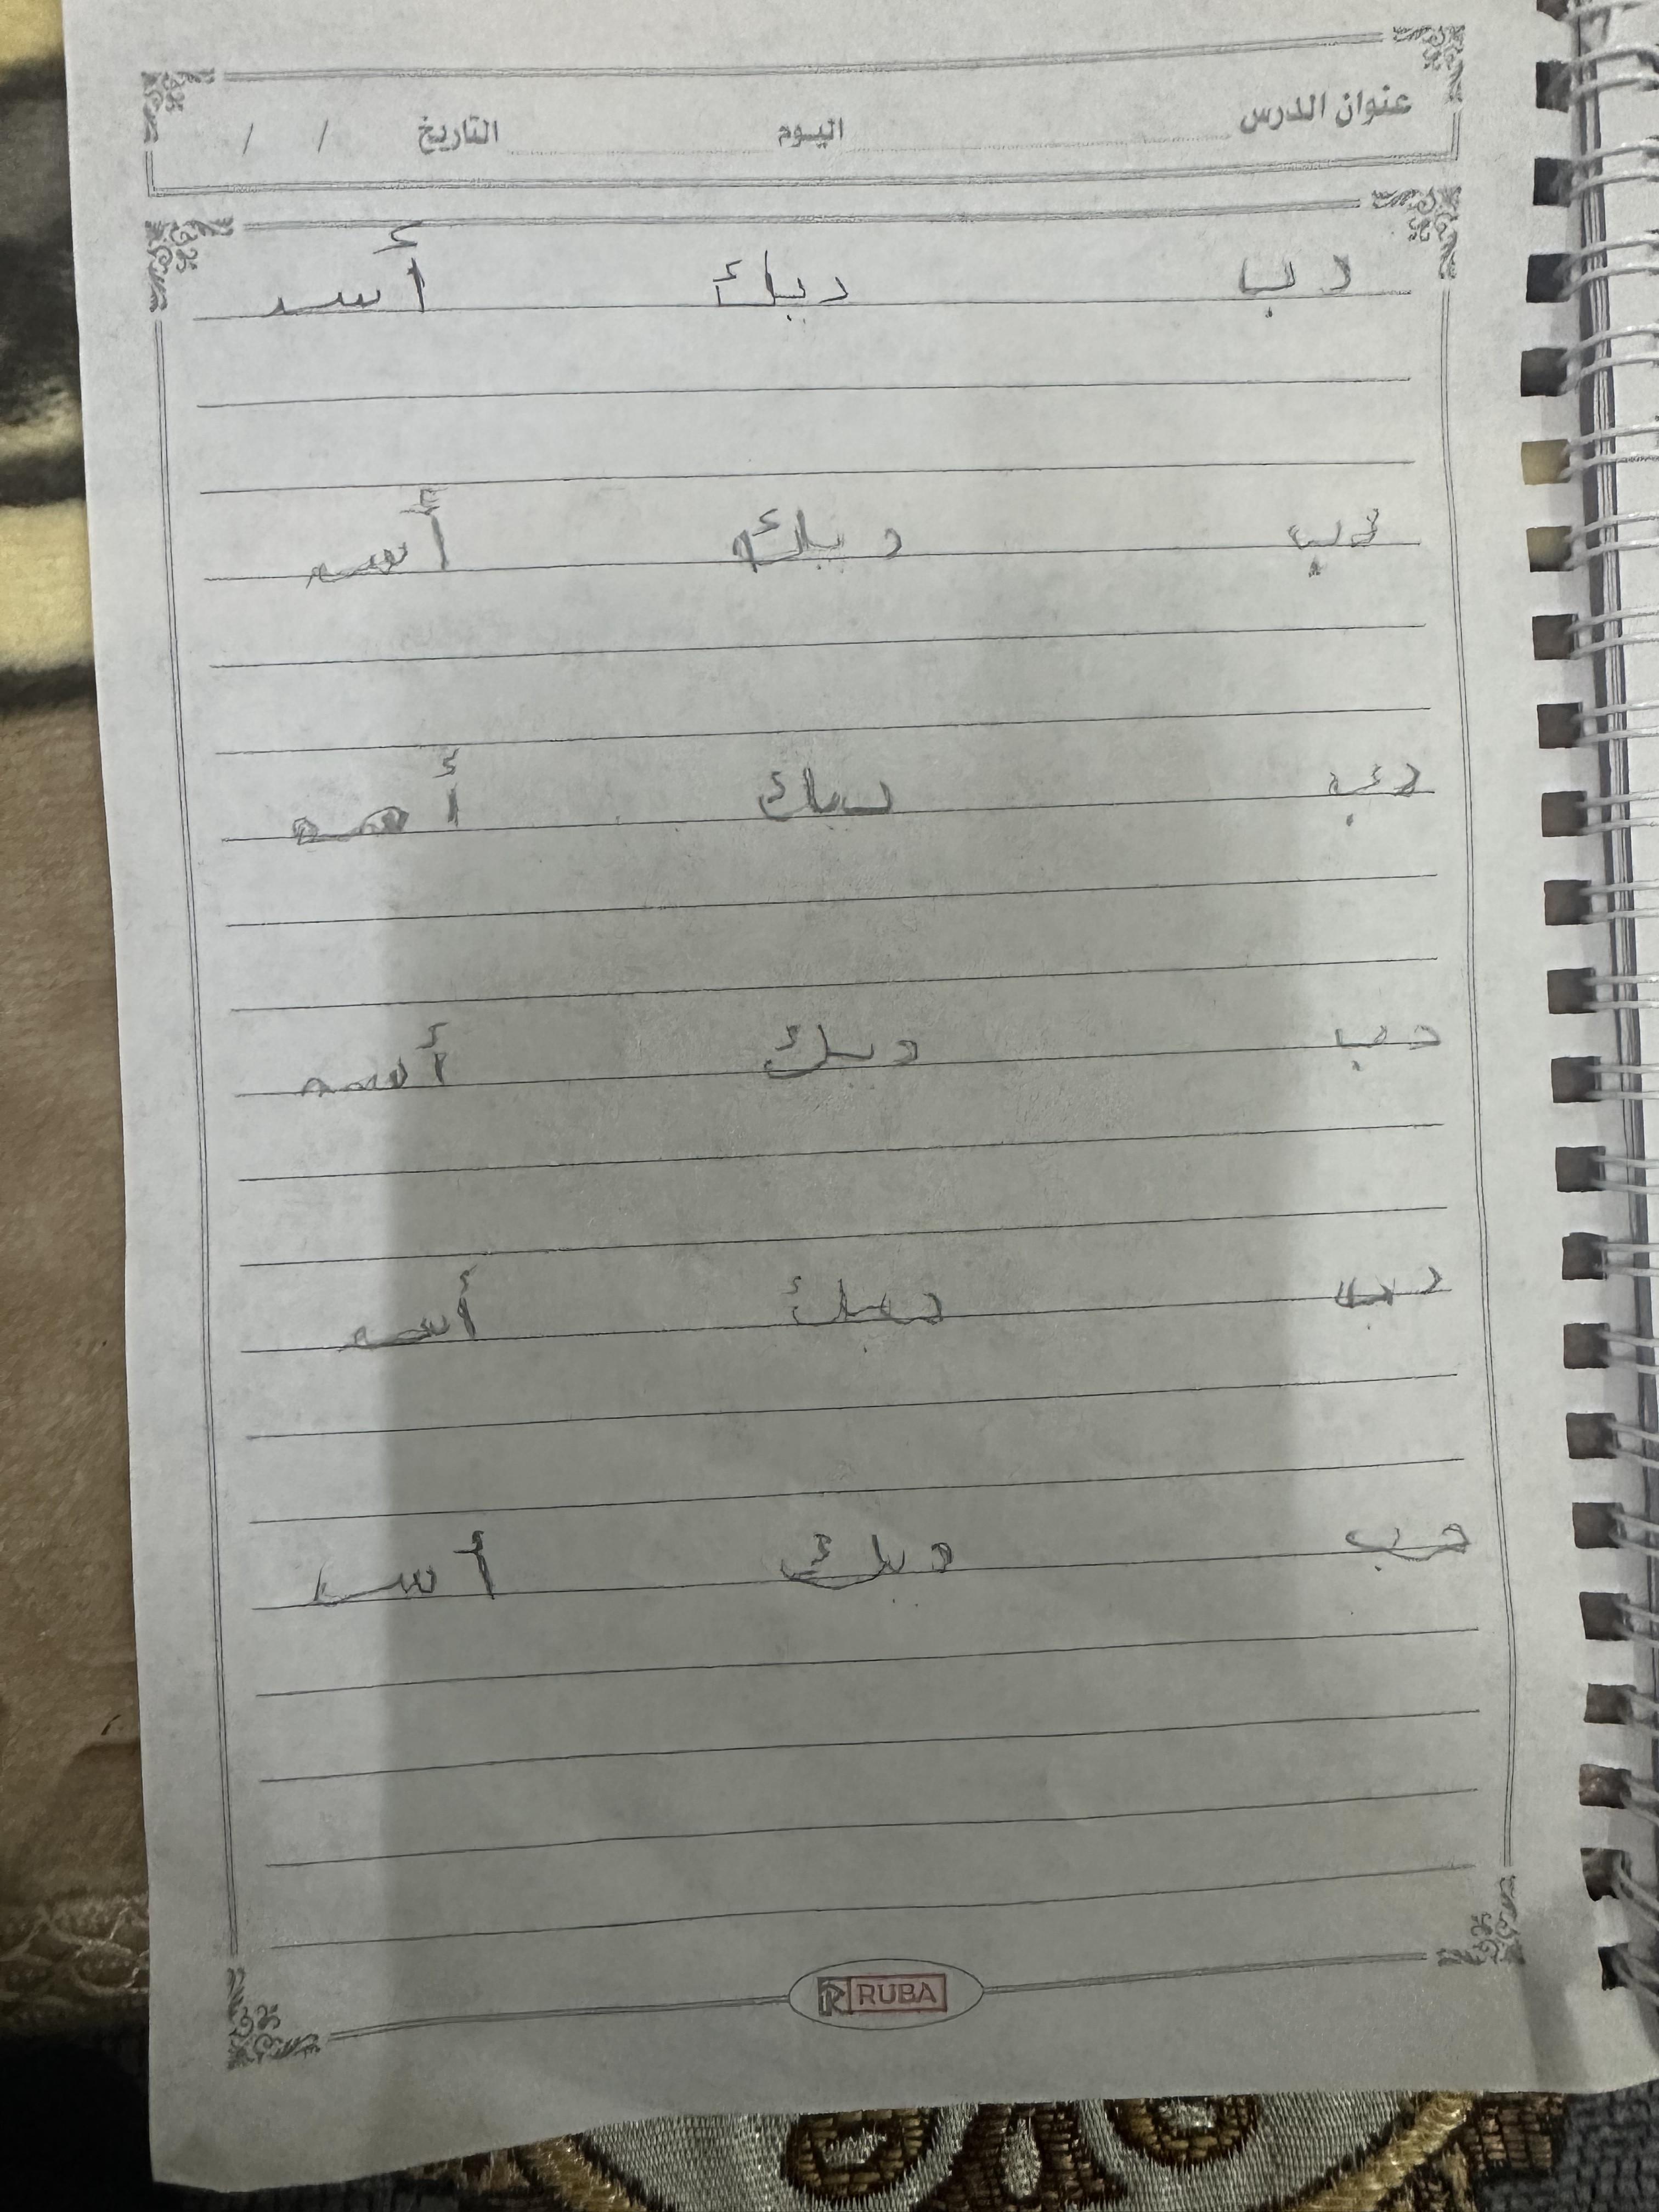 عنوان الدرس اليوم التاريخ / /
دب ديك أسد
دب ديك أسد
دب ديك أسد
دب ديك أسد
دب ديك أسد
دب ديك أسد
R RUBA